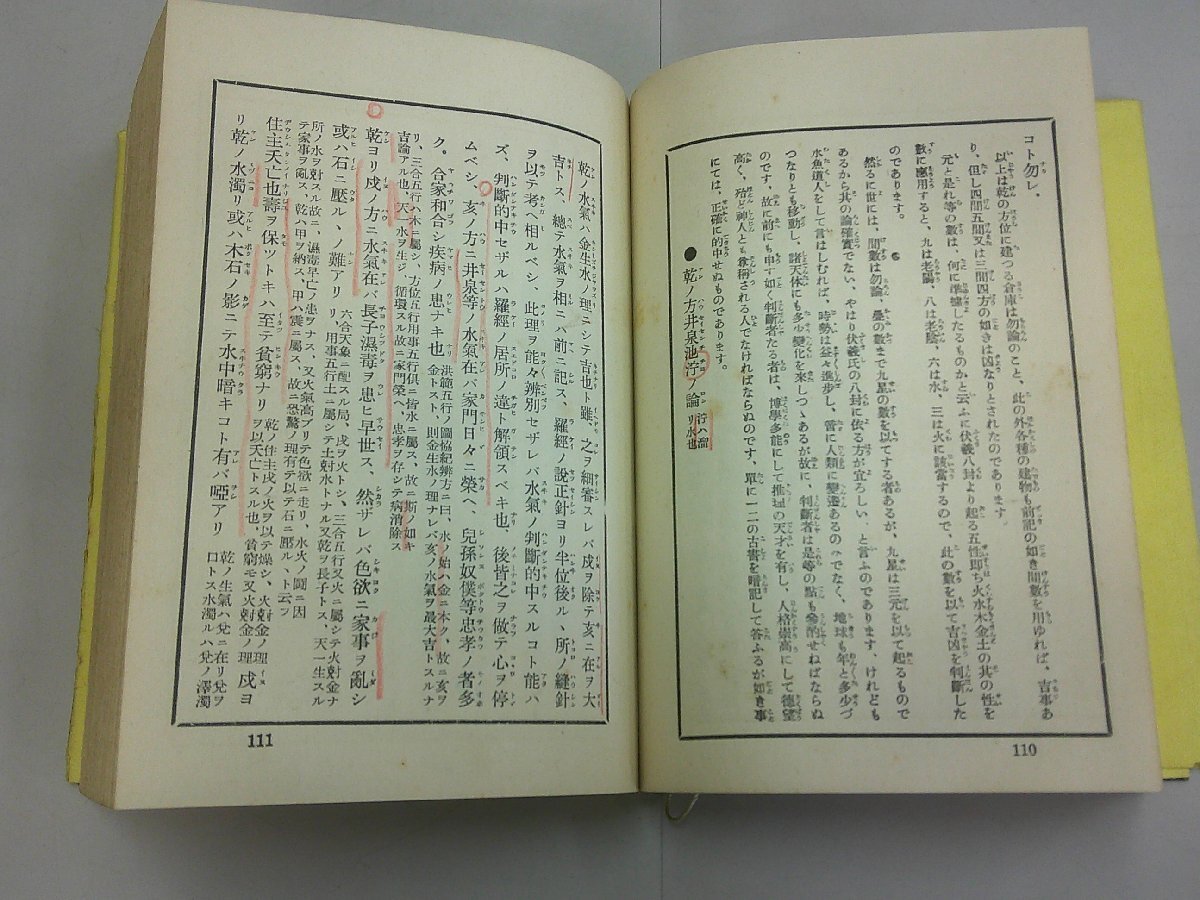 コト勿レ。
以上は乾の方位に建つる倉庫は勿論のこと、此の外各種の建物も前記の如き間數を用ゆれば、吉事あ
り、但し四間五間又は三間四方の如きは凶なりとされたのであります。
元と是れ等の數は、何に準據したるものかと云ふに伏羲八卦より起る五性即ち火水木金土の其の性を
數に應用すると、九は老陽、八は老陰、六は水、三は火に該當するので、此の數を以て吉凶を判斷した
のであります。
然るに世には、間數は勿論、疊の數まで九星の數を以てする者あるが、九星は三元を以て起るもので
あるから其の論確實でない、やはり伏羲氏の八卦に依る方が宜ろしい、と言ふのであります、けれども
水魚道人をして言はしむれば、時勢は益々進歩し、啻に人類に變遷あるのみでなく、地球も年と多少づ
つなりとも移動し、諸天体にも多少變化を來しつゝあるが故に、判斷者は是等の點も參酌せねばならぬ
のです、故に前にも申す如く判斷者たる者は、博學多能にして推理の天才を有し、人格崇高にして德望
高く、殆ど神人とも尊稱される人でなければならぬのです、單に一二の古書を暗記して答ふるが如き事
にては、正確に的中せぬものであります。
●乾ノ方井泉池泞ノ論 泞ハ溜
リ水也
110
乾ノ水氣ハ金生水ノ理ニシテ吉也ト雖、之ヲ細密スレバ戌ヲ除テ亥ニ在ヲ大
吉トス、總テ水氣ヲ相ニハ前ニ記ス、羅經ノ説正針ヨリ半位後ル、所ノ縫針
ヲ以テ考ヘ相ルベシ、此理ヲ能々辨別セザレバ水氣ノ判斷的中スルコト能ハ
ズ、判斷的中セザルハ羅經ノ居所ノ違ト解領スベキ也、後皆之ヲ倣テ心ヲ停
ムベシ、亥ノ方ニ井泉等ノ水氣在バ家門日々ニ榮ヘ、兒孫奴僕等忠孝ノ者多
ク。合家和合シ疾病ノ患ナキ也 洪範五行ノ圖協紀辨方ニ曰、水ノ始ハ金ニ本ク、故ニ亥ヲ
金トスト、則金生水ノ理ナレバ亥ノ水氣ヲ最大吉トスルナ
リ、三合五行ハ木ニ屬シ、方位五行用事五行倶ニ皆水ニ屬ス、故ニ斯ノ如キ
吉論アル也、天一水ヲ生ジ、循環スル故ニ家門榮ヘ、忠孝ヲ存シテ病消除ス
乾ヨリ戌ノ方ニ水氣在バ長子濕毒ヲ患ヒ早世ス、然ザレバ色欲ニ家事ヲ亂シ
或ハ石ニ壓ル丶ノ難アリ 六合天象ニ配スル局、戌ヲ火トシ、三合五行又火ニ屬シテ火尅金ナ
リ、用事五行土ニ屬シテ土尅水トナル又乾ヲ長子トス、天一生スル
所ノ水ヲ尅スル故ニ、濕毒早亡ノ患ヲナス、又火氣高ブリテ色欲ニ走リ、水火ノ鬪ニ因
テ家事ヲ亂ス、乾ハ甲ヲ納ス、甲ハ震ニ屬ス、故ニ恐驚ノ理有テ以テ石ニ壓ル丶ト云フ
住主夭亡也壽ヲ保ツトキハ至テ貧窮ナリ 乾ノ住主戌ノ火ヲ以テ燥シ、火尅金ノ理
ヲ以テ夭亡トスル也、貧窮モ又火尅金ノ理 戌ヨ
リ乾ノ水濁リ或ハ木石ノ影ニテ水中暗キコト有バ啞アリ 乾ノ生氣ハ兌ニ在リ兌ヲ
口トス水濁ルハ兌ノ澤濁
111